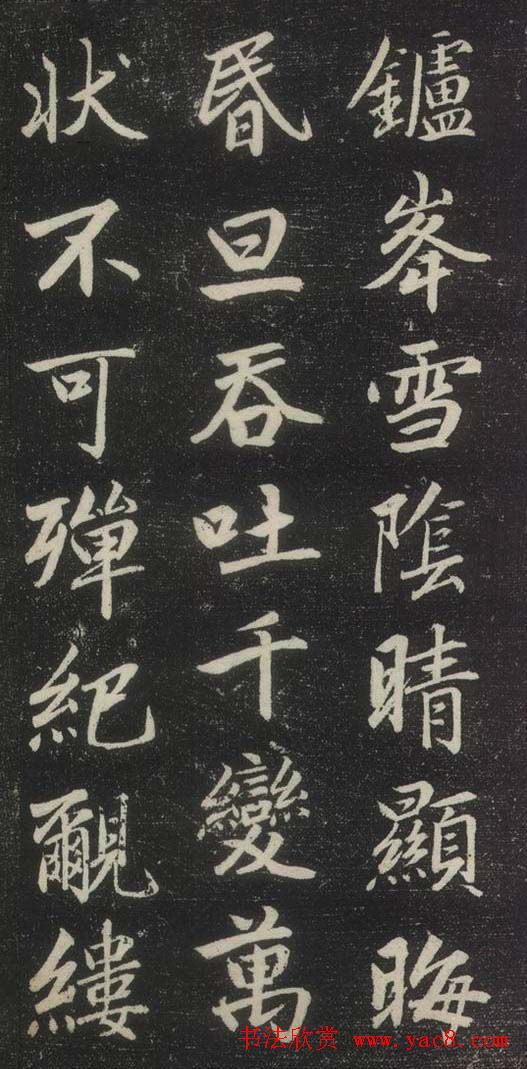 鑪峯雪陰晴顯晦
昏旦吞吐千變萬
状不可殫紀覼縷
书法欣赏 www.yac8.com